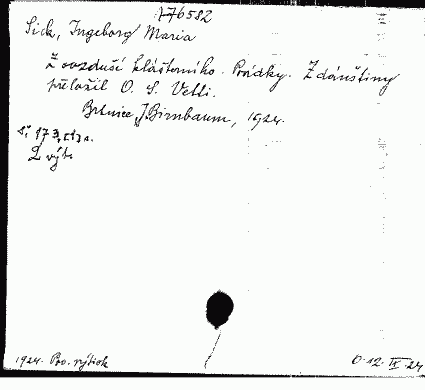 176582
Sick, Ingeborg Maria
Z ovzduší klášterního. Povídky. Z dánštiny
přeložil O. S. Vetti.
Brtnice, J. Birnbaum, 1924.
8°. 173, [1] s.
2 výt.
1924. Pov. výtisk
6.12.IX.24